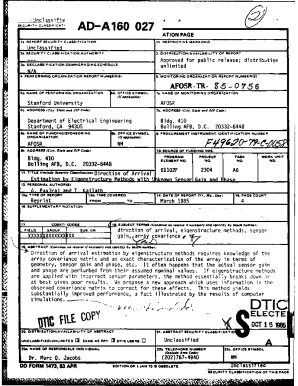 Unclassified
SECURITY CLASSIFICATION
AD-A160 027
ATION PAGE
1a REPORT SECURITY CLASSIFICATION
Unclassified
1b. RESTRICTIVE MARKINGS
2a SECURITY CLASSIFICATION AUTHORITY
3. DISTRIBUTION/AVAILABILITY OF REPORT
Approved for public release; distribution
unlimited
2b DECLASSIFICATION/DOWNGRADING SCHEDULE
N/A
4 PERFORMING ORGANIZATION REPORT NUMBER(S)
5. MONITORING ORGANIZATION REPORT NUMBER(S)
AFOSR-TR- 85-0756
6a NAME OF PERFORMING ORGANIZATION
Stanford University
6b. OFFICE SYMBOL
7a. NAME OF MONITORING ORGANIZATION
AFOSR
6c ADDRESS (City, State and ZIP Code)
Department of Electrical Engineering
Stanford, CA 94305
7b. ADDRESS (City, State and ZIP Code)
Bldg. 410
Bolling AFB, D.C. 20332-6448
8a NAME OF FUNDING/SPONSORING
ORGANIZATION
AFOSR
8b. OFFICE SYMBOL
NM
9. PROCUREMENT INSTRUMENT IDENTIFICATION NUMBER
F49620-79-C-0058
8c ADDRESS (City, State and ZIP Code)
Bldg. 410
Bolling AFB, D.C. 20332-6448
10. SOURCE OF FUNDING NOS.
PROGRAM
ELEMENT NO.
PROJECT
NO.
TASK
NO.
WORK UNIT
NO.
61102F
2304
A6
11. TITLE (Include Security Classification) Direction of Arrival
Estimation by Eigenstructure Methods with Unknown Sensor Gain and Phase
12. PERSONAL AUTHOR(S)
A. Paulraj and T. Kailath
13a TYPE OF REPORT
Reprint
13b. TIME COVERED
FROM TO
14. DATE OF REPORT (Yr., Mo., Day)
March 1985
15. PAGE COUNT
4
16. SUPPLEMENTARY NOTATION
17. COSATI CODES
FIELD GROUP SUB. GR.
18. SUBJECT TERMS
direction of arrival, eigenstructure methods, sensor
gain, array covariance
19. ABSTRACT
Direction of arrival estimation by eigenstructure methods requires knowledge of the
array covariance matrix and an exact characterization of the array in terms of
geometry, sensor gain and phase, etc. It often happens that the actual sensor gain
and phase are perturbed from their assumed nominal values. If eigenstructure methods
are applied with incorrect sensor parameters, the method essentially breaks down or
at best gives poor results. We propose a new approach which uses information in the
observed covariance matrix to correct for these effects. This method yields
substantially improved performance, a fact illustrated by the results of computer
simulations.
DTIC FILE COPY
DTIC
SELECTE
OCT 15 1985
A
20. DISTRIBUTION/AVAILABILITY OF ABSTRACT
21. ABSTRACT SECURITY CLASSIFICATION
Unclassified
22a. NAME OF RESPONSIBLE INDIVIDUAL
Dr. Marc Q. Jacobs
22b. TELEPHONE NUMBER
(Include Area Code)
(202)767-4940
22c. OFFICE SYMBOL
NM
DD FORM 1473, 83 APR
EDITION OF 1 JAN 73 IS OBSOLETE.
SECURITY CLASSIFICATION OF THIS PAGE